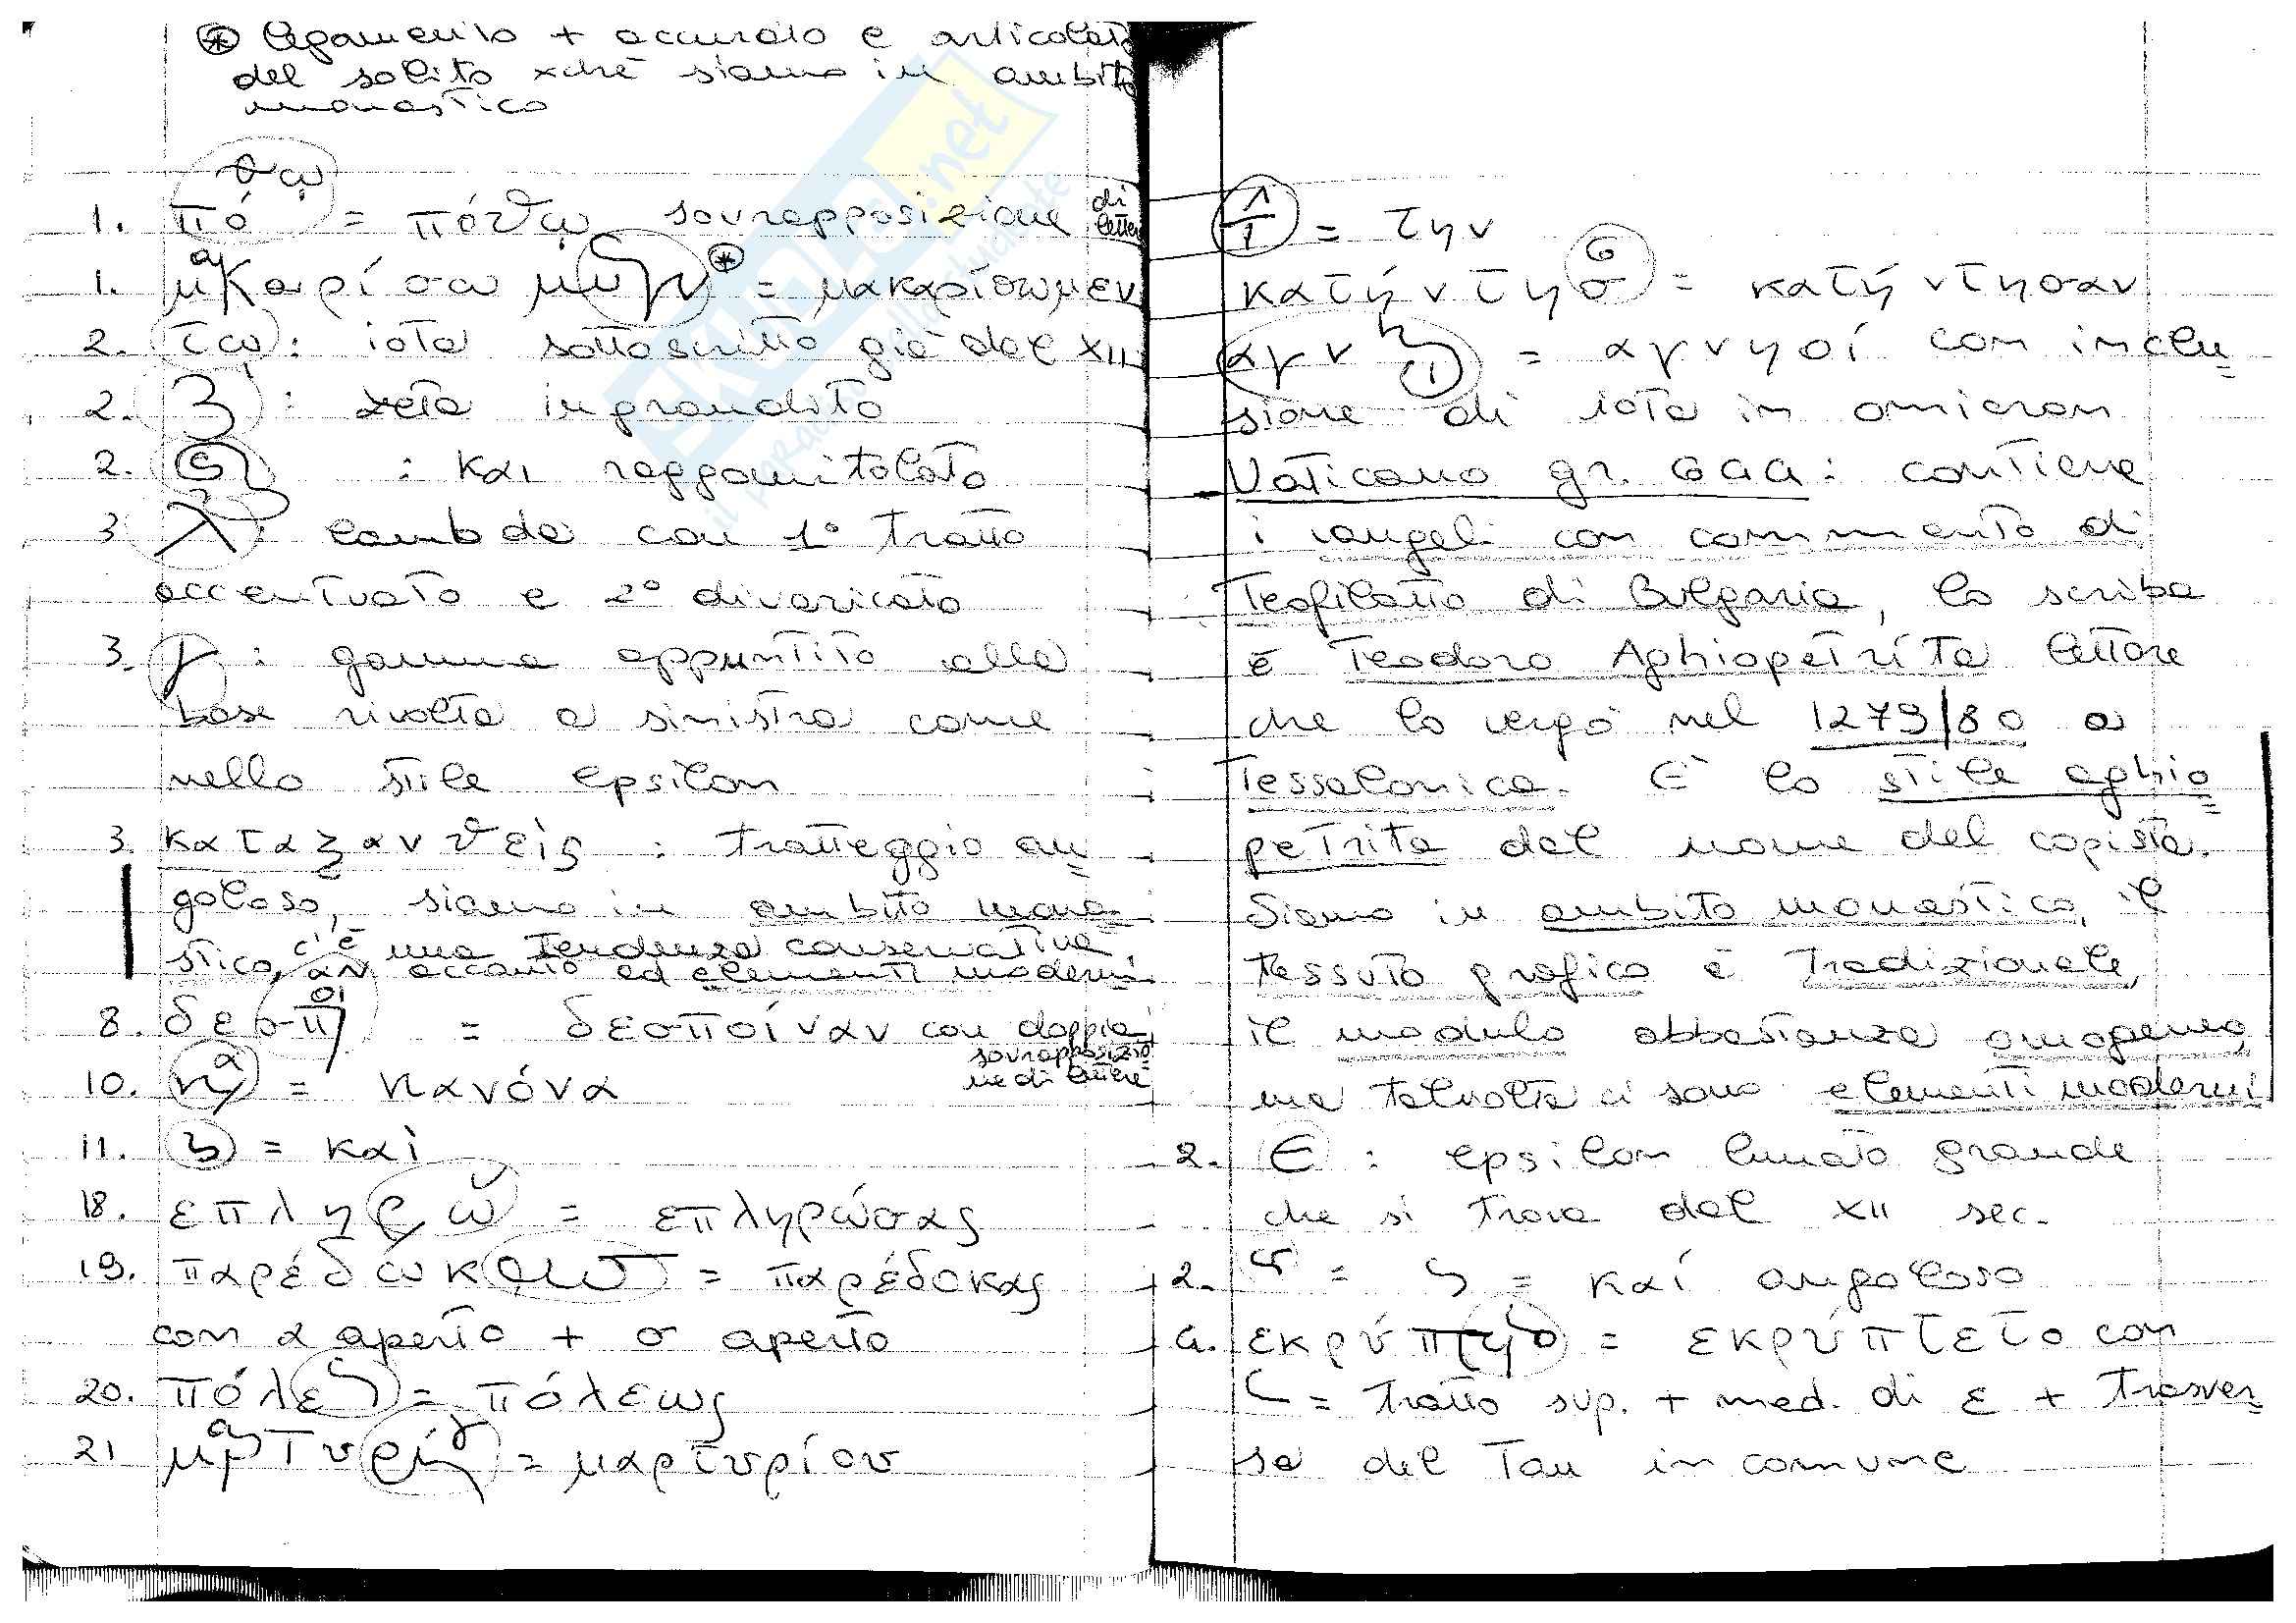 ⊛ legamento + accurato e articolato
del solito xché siamo in ambito
monastico
θῳ
1. πό = πόθῳ sovrapposizione di lettere
1. μακαρίσωμεν ⊛ = μακαρίσωμεν
2. τῳ: iota sottoscritto già dal XII
2. ζ : zeta ingrandito
2. : και raggomitolato
3. λ: lambda con 1° tratto
accentuato e 2° divaricato
3. γ: gamma appuntito alla
base rivolta a sinistra come
nello stile epsilon
3. καταξανθεὶς : tratteggio an=
goloso, siamo in ambito mona=
stico, c'è una tendenza conservativa
accanto ad elementi moderni
8. δεσπ = δεσποίναν con doppia
sovrapposizione di lettere
10. = κανόνα
11. = καὶ
18. επληρω = επληρώσας
19. παρέδωκας = παρέδοκας
con α aperto + σ aperto
20. πόλε = πόλεως
21 μαρτυρί = μαρτυρίου
= την
κατήντησ = κατήντησαν
αγν = αγνησί con inclu=
sione di iota in omicron
Vaticano gr. 644: contiene
i vangeli con commento di
Teofilatto di Bulgaria, lo scriba
è Teodoro Aghiopetrita lettore
che lo vergò nel 1279/80 a
Tessalonica. È lo stile aghio=
petrita dal nome del copista.
Siamo in ambito monastico, il
tessuto grafico è tradizionale,
il modulo abbastanza omogeneo,
ma talvolta ci sono elementi moderni
2. Є : epsilon lunato grande
che si trova dal XII sec.
2. = = καί angoloso
4. εκρύπτετο = εκρύπτετο con
= tratto sup. + med. di ε + trasver=
sa del Tau in comune